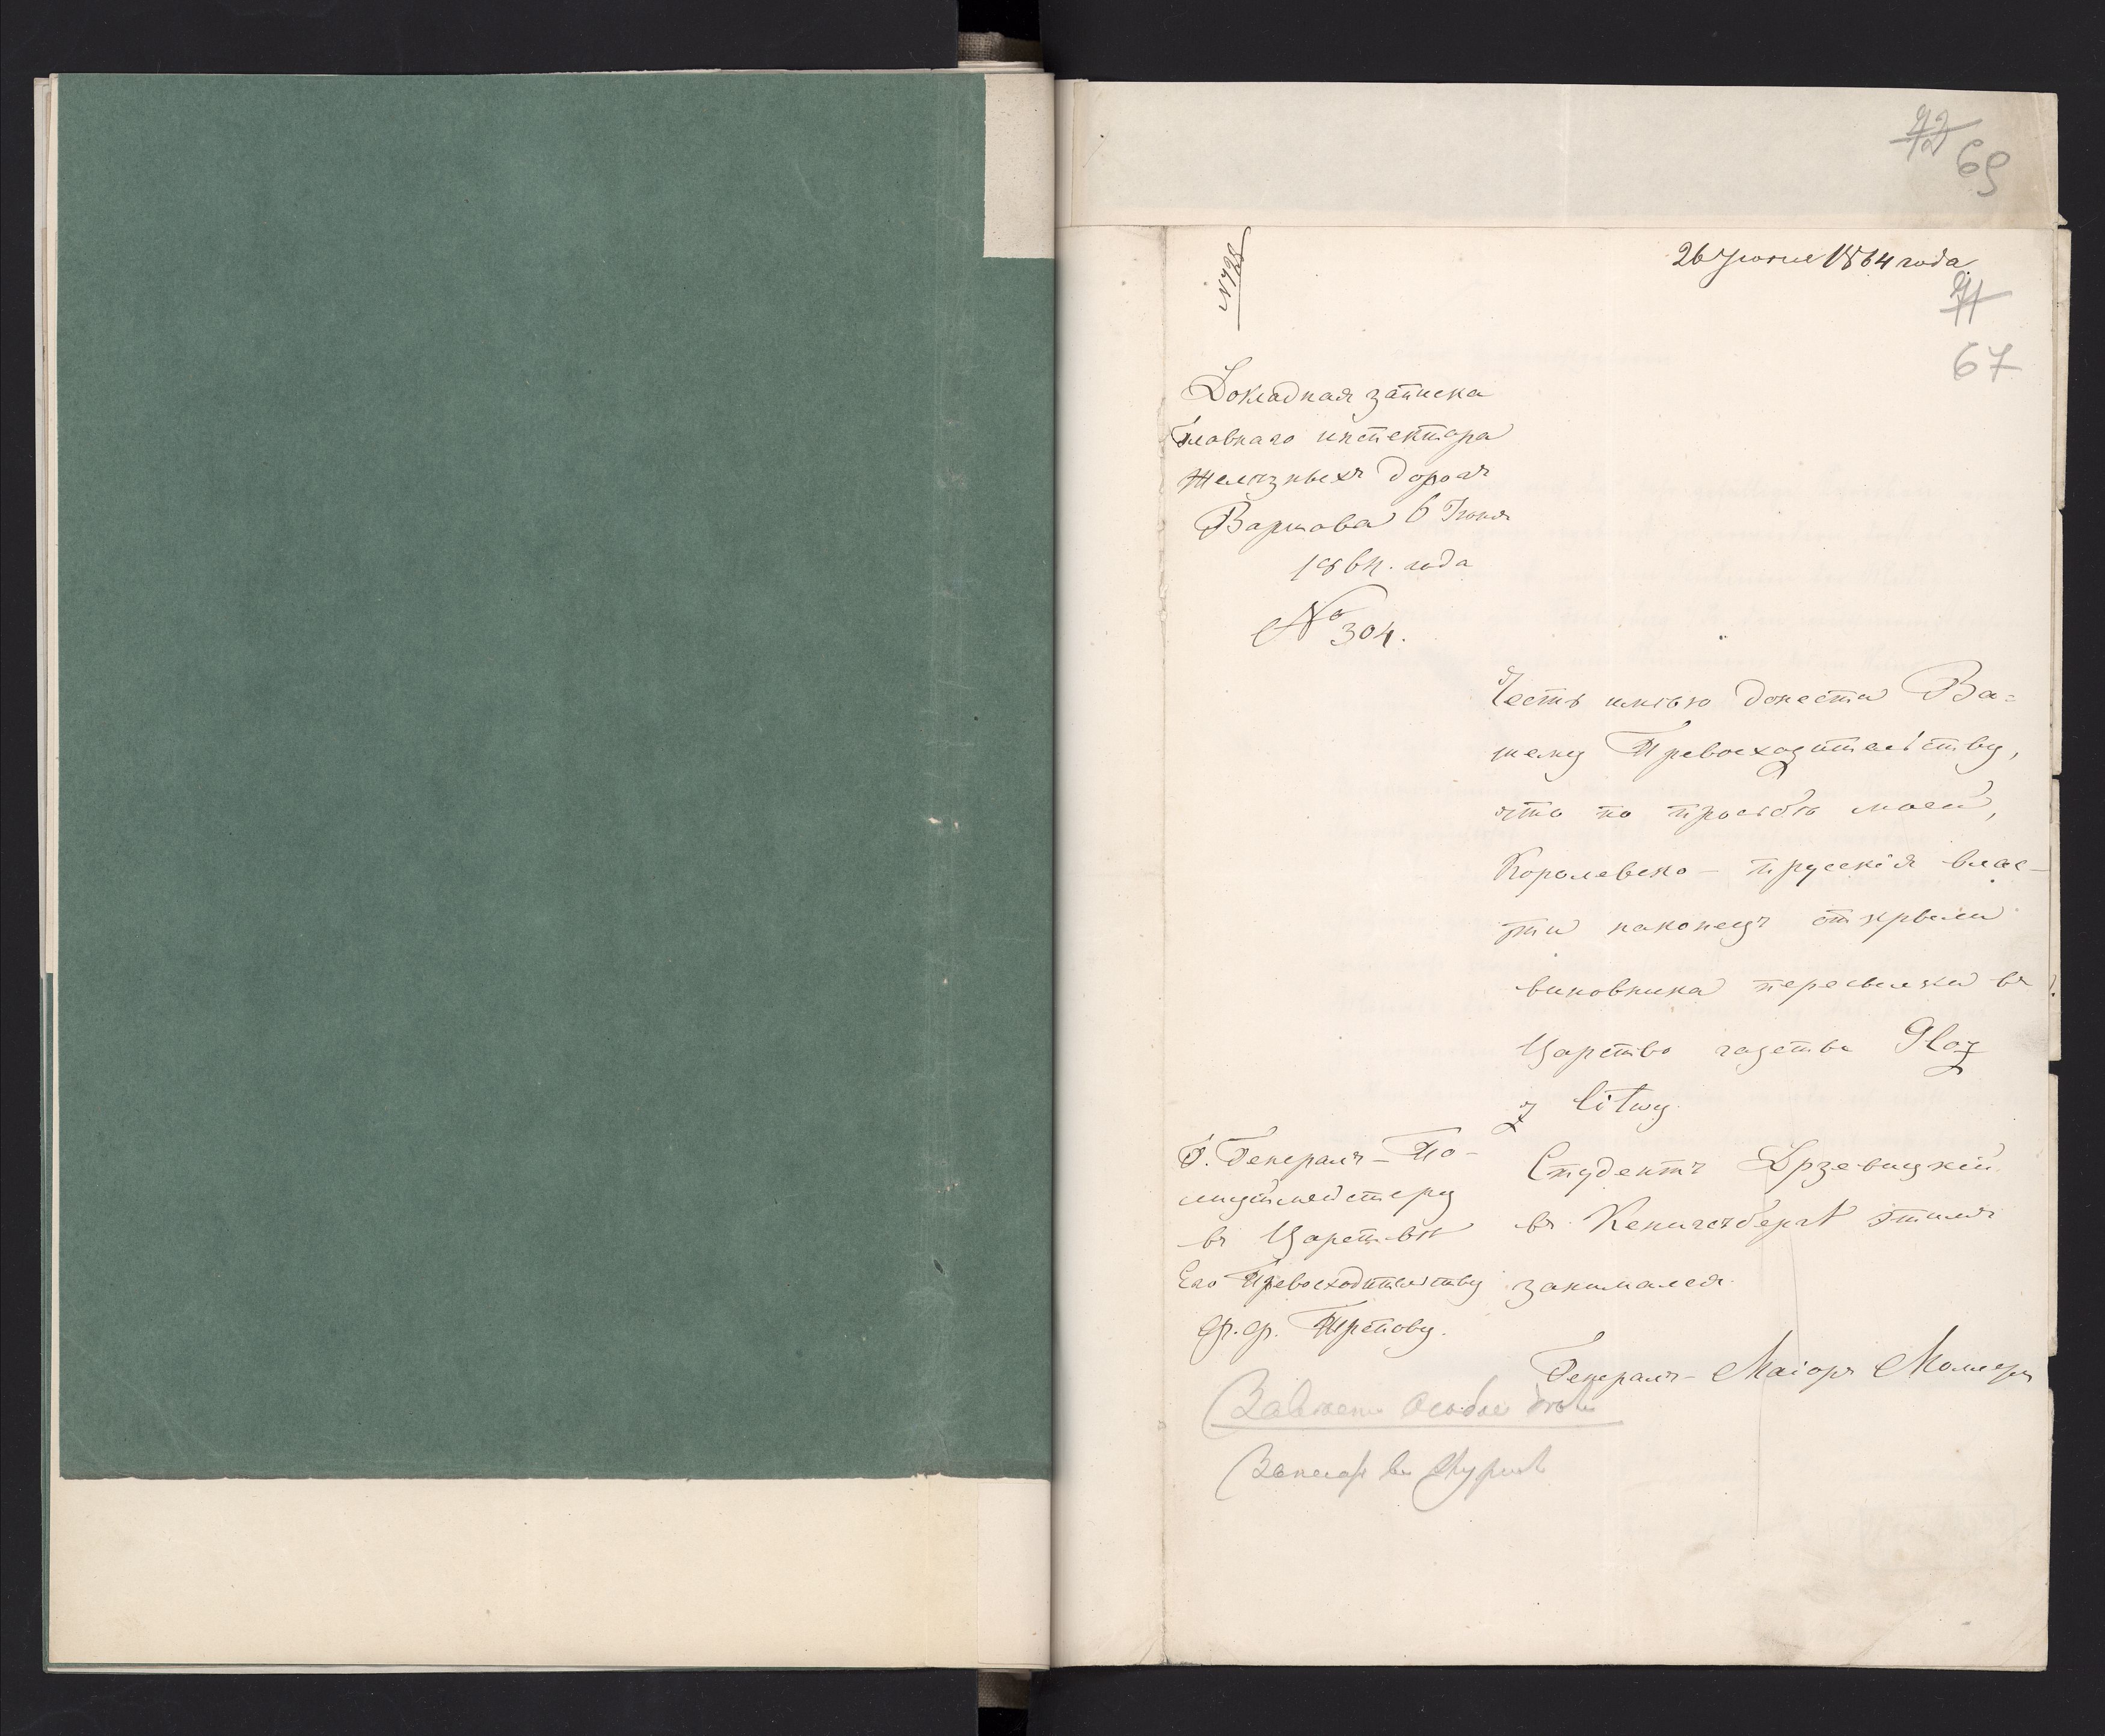 72
69
N 728
26 Июня 1864 года
71
67
Докладная записка
Главнаго инспектора
железныхъ дорогъ
Варшава 6 Июня
1864. года
№ 304.
Честь имѣю донести Ва=
шему Превосходительству,
что по просьбѣ моей,
Королевско - прусскія влас-
ти наконецъ открыли
виновника пересылки въ
Царство газеты Głoz
z litwy.
Студентъ Држевицкій
въ Кенигсбергѣ этимъ
занимался.
Генералъ-Маіоръ
Г. Генералъ-По-
лицiймейстеру
въ Царствѣ
Его Превосходительству
Ф. Ф. Трепову.
Завести особое дѣло